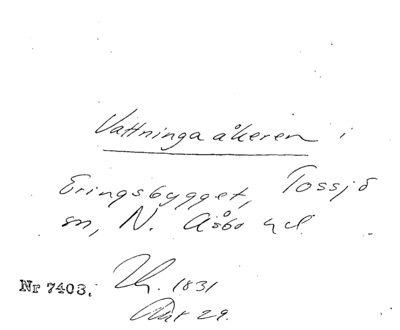 Vattninga åkeren i
Eringsbygget, Tossjö
sn, N. Åsbo hd.
Nr 7403. Th. 1831
Akt 29.